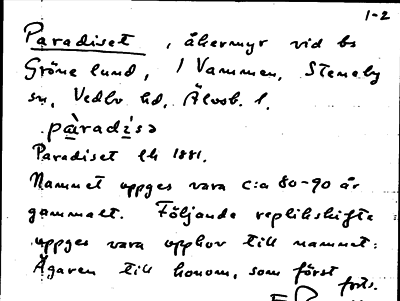 1-2
Paradiset, åkermyr vid bs
Gröne lund, 1 Vammen, Steneby
sn, Vedbo hd, Älvsb. l.
pàradisə
Paradiset Ek 1881.
Namnet uppges vara c:a 80-90 år
gammalt. Följande replikskifte
uppges vara upphov till namnet:
Ägaren till honom, som först
forts.